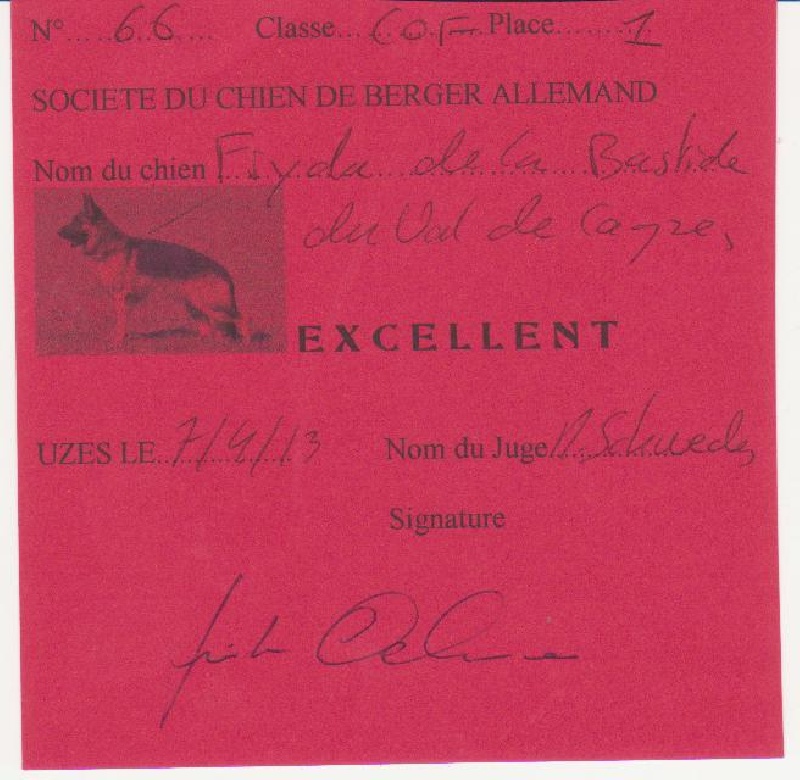 N° 66 Classe COF Place 1
SOCIETE DU CHIEN DE BERGER ALLEMAND
Nom du chien Fryda de la Bastide
du Val de
EXCELLENT
UZES LE 7/4/13 Nom du Juge
Signature